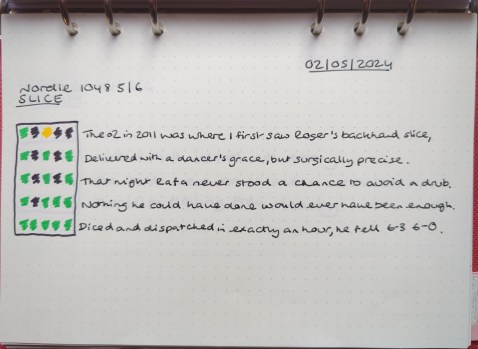 02/05/2024
Wordle 1048 5/6
SLICE
The O2 in 2011 was where I first saw Roger's backhand slice,
Delivered with a dancer's grace, but surgically precise.
That night Rafa never stood a chance to avoid a drub.
Nothing he could have done would ever have been enough.
Diced and dispatched in exactly an hour, he fell 6-3 6-0.